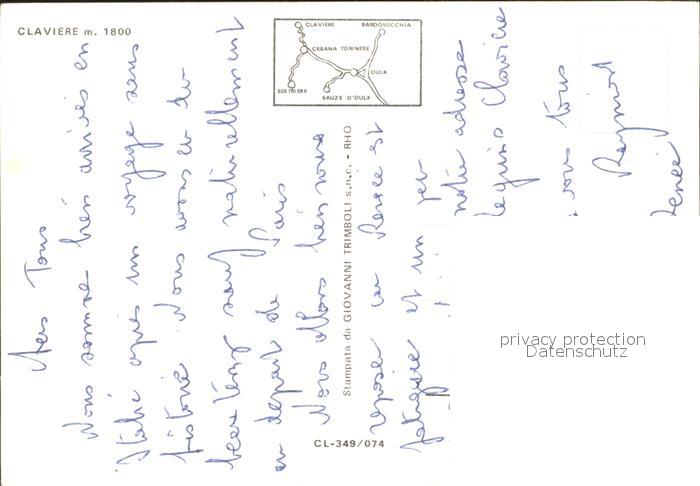 CLAVIERE m. 1800
CLAVIERE
BARDONECCHIA
CESANA TORINESE
OULX
SESTRIERE
SAUZE D'OULX
Stampata da GIOVANNI TRIMBOLI s.n.c. - RHO
CL-349/074
Tous
Nous somme très arrivés en
Italie après un voyage sans
histoire. Nous avons eu du
beau temps sauf naturellement
au départ de Paris
Nous allons bien nous
reposer car Renée est
fatiguée et un peu
notre adresse
Claviere
vous tous
Raymond
Renée
privacy protection
Datenschutz